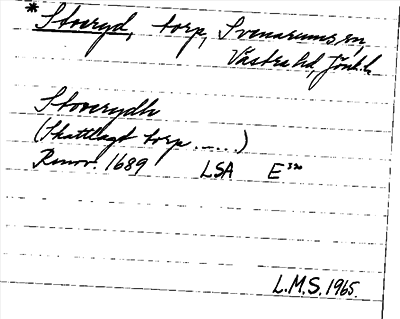 * Stoeryd, torp, Svenarums sn,
Västra hd, Jönk. l.
Stoverydh
(Skattlagdt torp .....)
Renov. 1689 LSA E³²⁰
L.M.S. 1965.